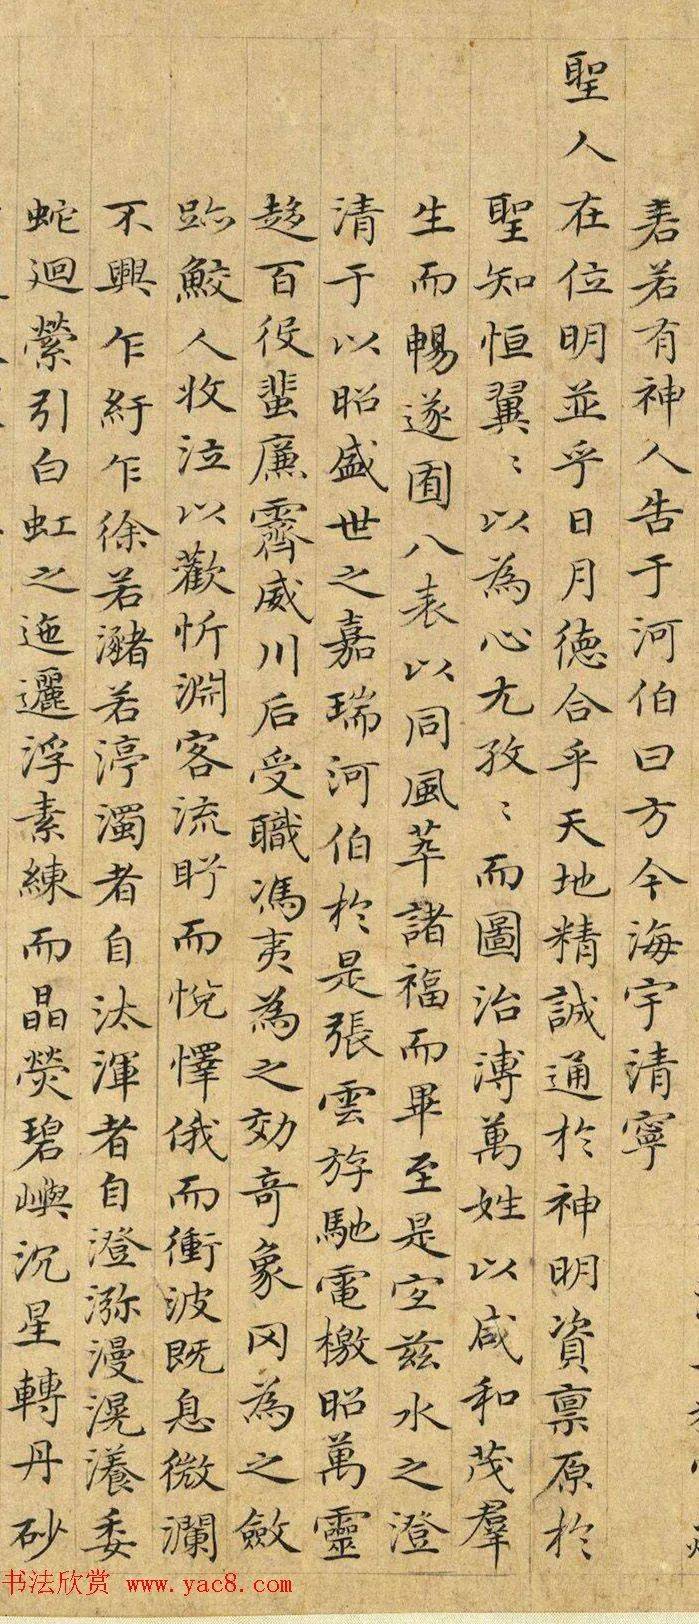 耉若有神人告于河伯曰方今海宇清寧
聖人在位明並乎日月德合乎天地精誠通於神明資禀原於
聖知恒翼〻以為心尤孜〻而圖治溥萬姓以咸和茂羣
生而暢遂囿八表以同風萃諸福而畢至是宜茲水之澄
清于以昭盛世之嘉瑞河伯於是張雲斿馳電檄昭萬靈
趍百役蜚廉霽威川后受職馮夷為之効奇象罔為之斂
跡鮫人收泣以歡忻淵客流眄而悅懌俄而衝波既息微瀾
不興乍紆乍徐若瀦若渟濁者自汰渾者自澄瀰漫滉瀁委
蛇迴縈引白虹之迤邐浮素練而晶熒碧嶼沉星轉丹砂
书法欣赏 www.yac8.com